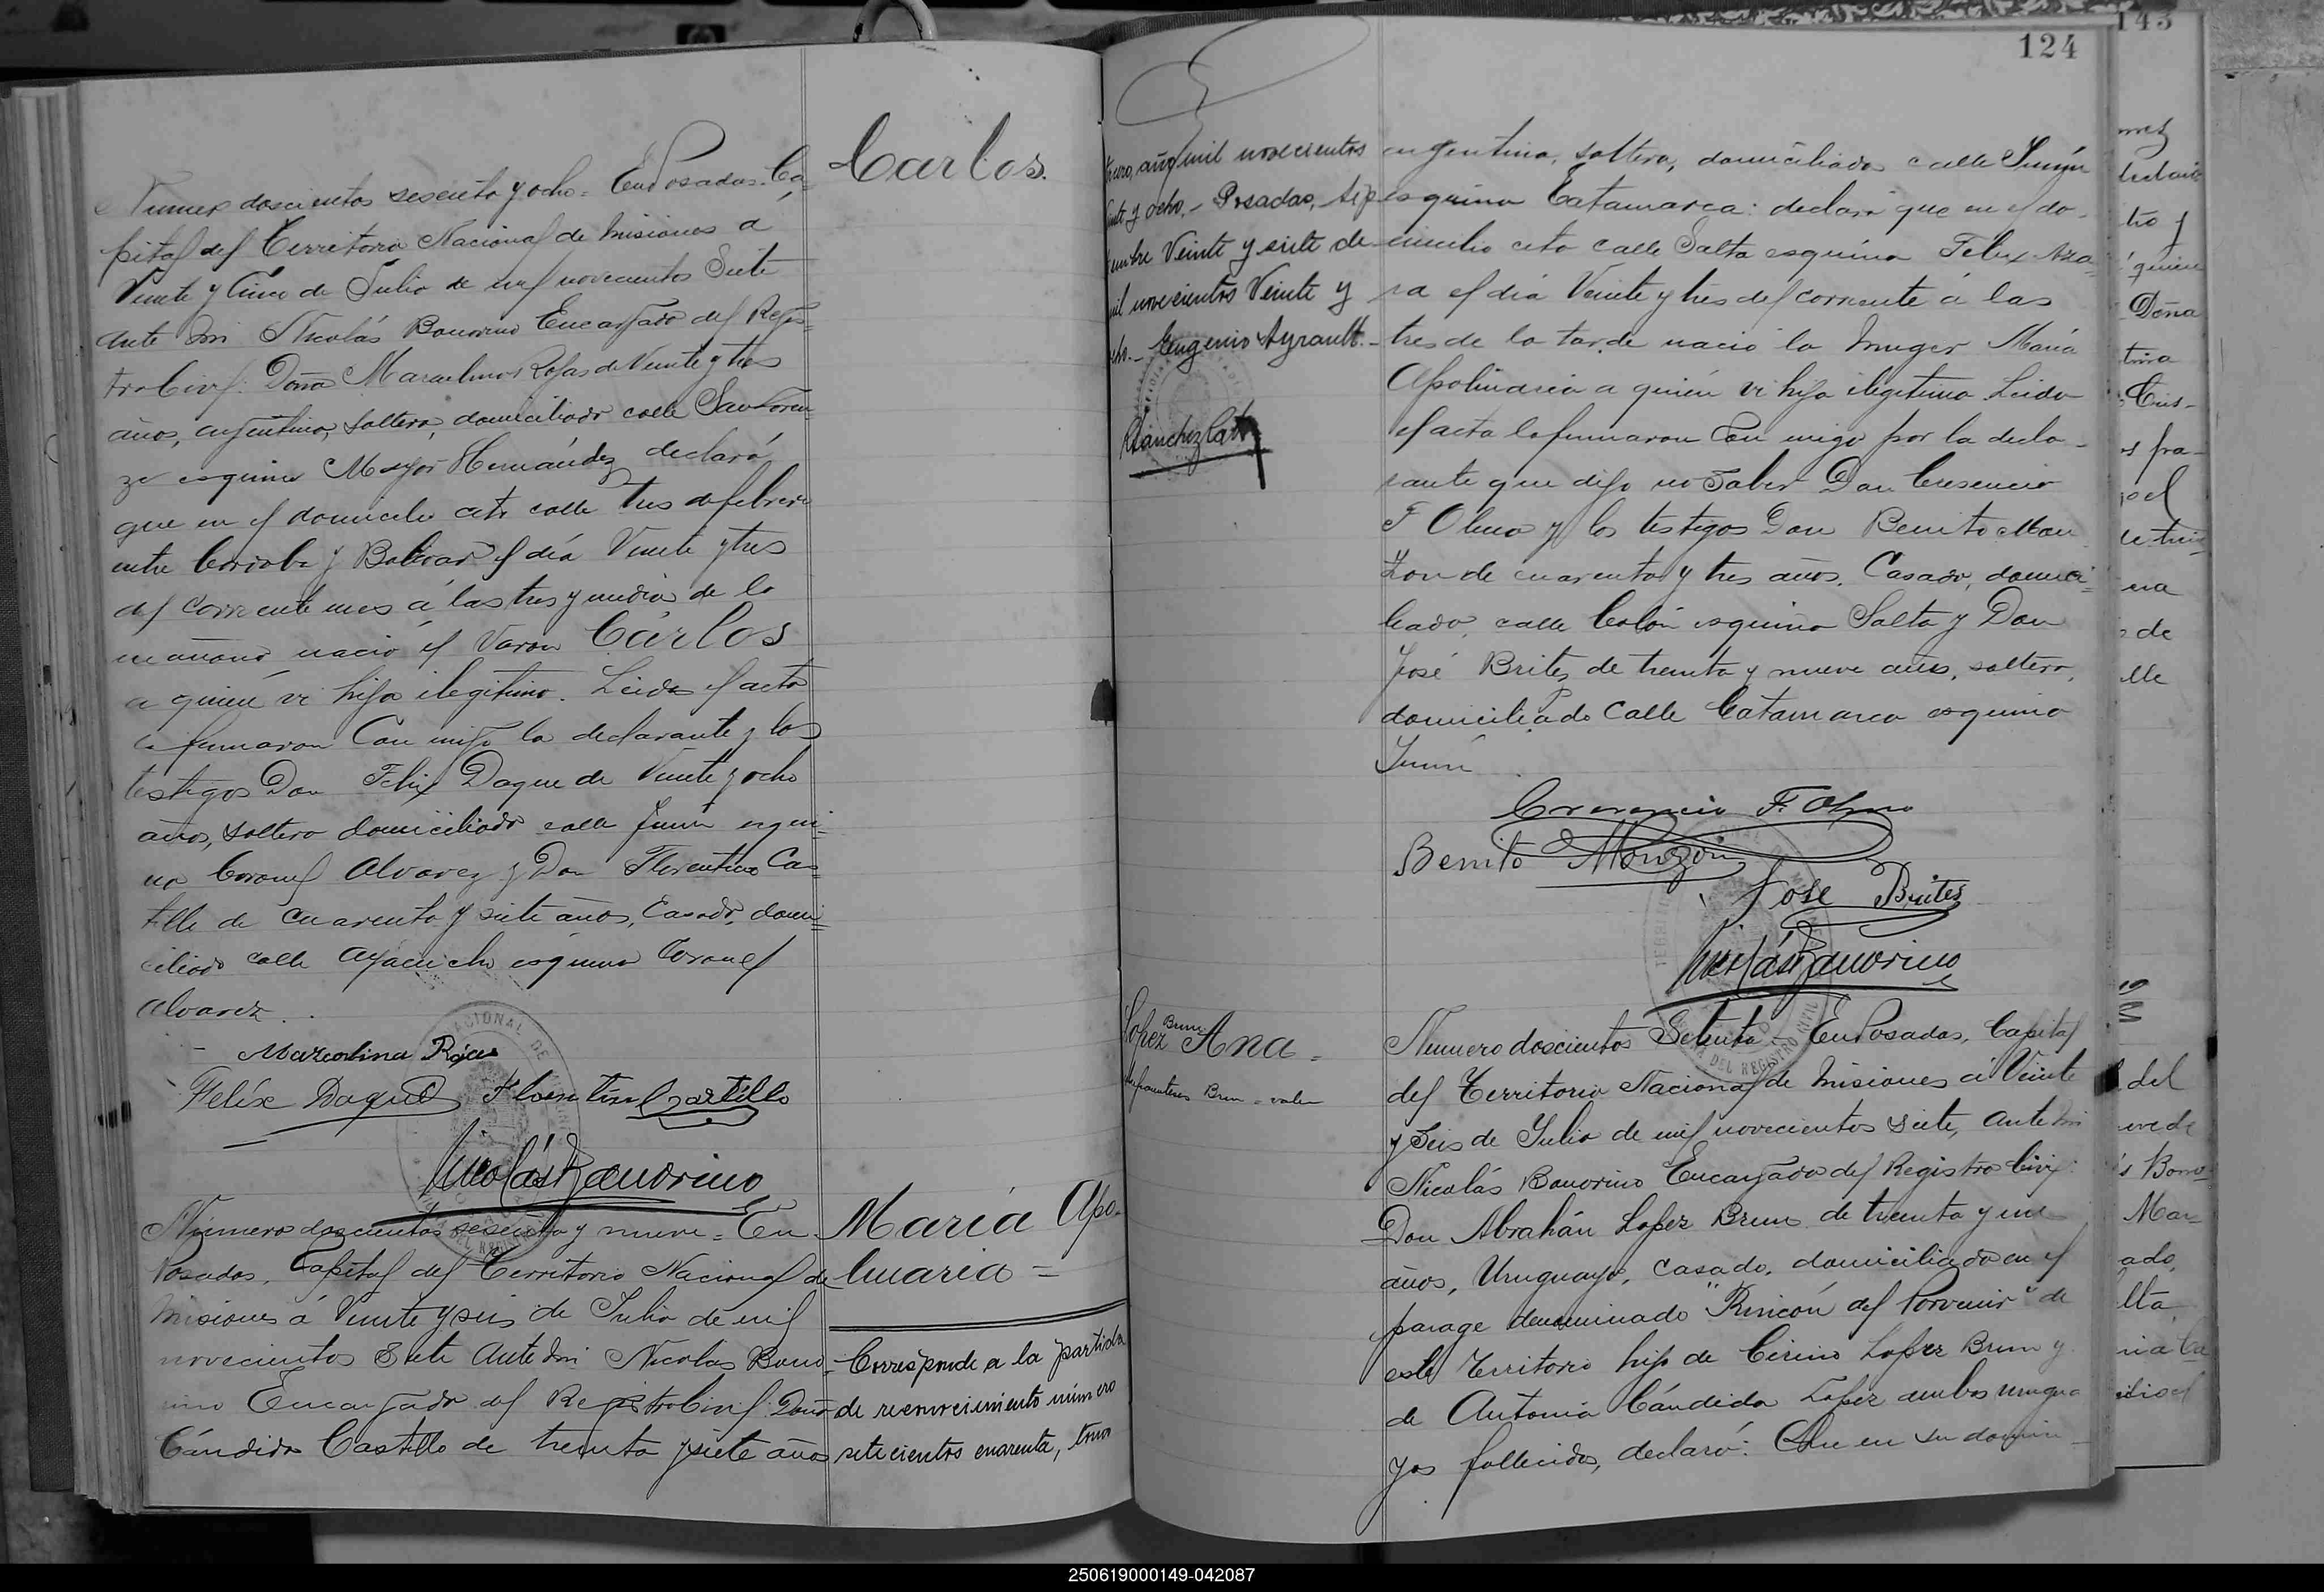 Carlos.
Numero doscientos sesenta y ocho = En Posadas. Ca=
pital del Territorio Nacional de Misiones á
Veinte y Cinco de Julio de mil novecientos Siete
ante mi Nicolás Bonorino Encargado del Regis=
tro Civil: Doña Marcelina Rojas de Veinte y tres
años, argentina, soltera, domiciliada calle San Loren
zo esquina Mayor Hernández declaró
que en el domicilio cito calle tres de febrero
entre Cordoba y Bolivar el día Veinte y tres
del corriente mes á las tres y media de la
mañana nació el Varon Cárlos
a quien vi hijo ilegitimo. Leida el acta
la firmaron Con migo la declarante y los
testigos Don Felix Daque de Veinte y ocho
años, soltero domiciliado calle Junin esqui=
na Coronel Alvarez y Don Florentino Cas=
tillo de cuarenta y siete años, Casado, domi=
ciliado calle Ayacucho esquina Coronel
Alvarez.
Marcelina Rojas
Felix Daque Florentino Castillo
Nicolás Bonorino
María Apo-
linaria =
Número doscientos sesenta y nueve = En
Posadas, Capital del Territorio Nacional de
Misiones á Veinte y seis de Julio de mil
novecientos Siete Ante mi Nicolas Bono
rino Encargado del Registro Civil: Doña
Cándida Castillo de treinta y siete años
Corresponde a la partida
de reconocimiento número
setecientos cuarenta, tomo
124
año mil novecientos
veinte y ocho. - Posadas, sep
tiembre Veinte y siete de
mil novecientos Veinte y
ocho. - Eugenio Ayrault. -
argentina, soltera, domiciliada calle Junin
esquina Catamarca: declaró que en el do-
micilio cito calle Salta esquina Felix Aza=
ra el día Veinte y tres del corriente á las
tres de la tarde nació la muger María
Apolinaria a quien vi hija ilegitima. Leida
el acta la firmaron Con migo por la decla-
rante que dijo no Saber Don Cresencio
F Olmo y los testigos Don Benito Mon
zon de cuarenta y tres años. Casado, domici=
liado, calle Colón esquina Salta y Don
José Brites de treinta y nueve años, soltero,
domiciliado Calle Catamarca esquina
Junin
Cresencio F. Olmo
Benito Monzón
Jose Brites
Nicolás Bonorino
Lopez Brum Ana =
Brum = vale
Numero doscientos Setenta En Posadas, Capital
del Territorio Nacional de Misiones á Veinte
y Seis de Julio de mil novecientos siete, ante mi
Nicolás Bonorino Encargado del Registro Civil:
Don Abrahán Lopez Brum de treinta y un
años, Uruguayo, casado, domiciliado en el
parage denominado "Rincón del Porvenir" de
este Territorio hijo de Cirino Lopez Brum y
de Antonia Cándida Lopez ambos urugua
yos fallecidos, declaró: Que en su domici-
250619000149-042087